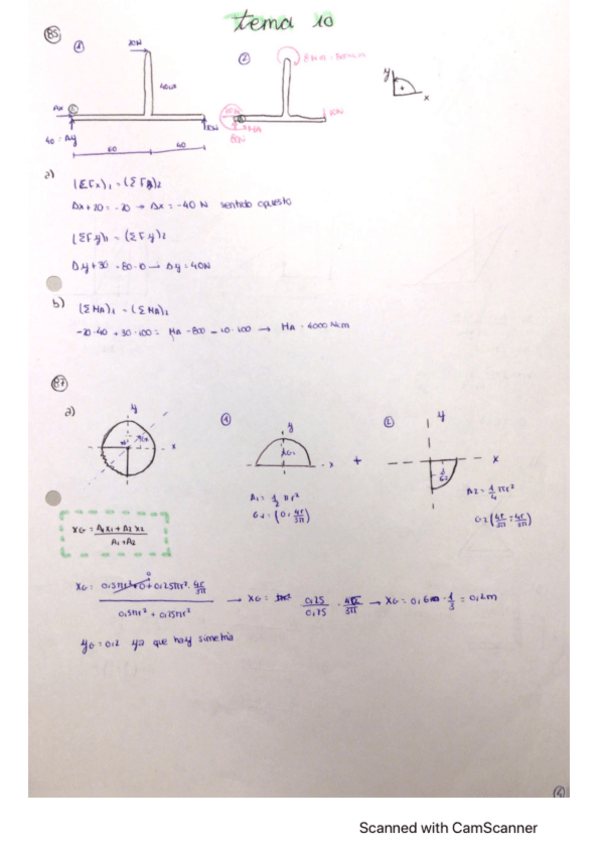 tema 10
85
1
20N
40cm
Ax
40 = Ay
60
40
2
10N
80N
y
x
a)
(ΣFx)1 = (ΣFx)2
Ax+20 = -20 → Ax = -40 N sentido opuesto
(ΣFy)1 = (ΣFy)2
Ay+30
Ay = 40N
b) (ΣMA)1 = (ΣMA)2
-20·40 + 30·100 = MA - 800 - 10·100 → MA = 4000 Ncm
87
a)
y
x
1
y
x
+
2
y
x
A1 = 1/2 πr²
G1 = (0, 4r/3π)
A2 = 1/4 πr²
G2 (4r/3π, 4r/3π)
XG = A1X1 + A2X2 / A1+A2
XG = 0,5πr²·0 + 0,25πr²· 4r/3π / 0,5πr² + 0,25πr² → XG = 0,25/0,75 · 4r/3π → XG = 0,6m · 1/3 = 0,2m
yG = 0,2 ya que hay simetría
Scanned with CamScanner